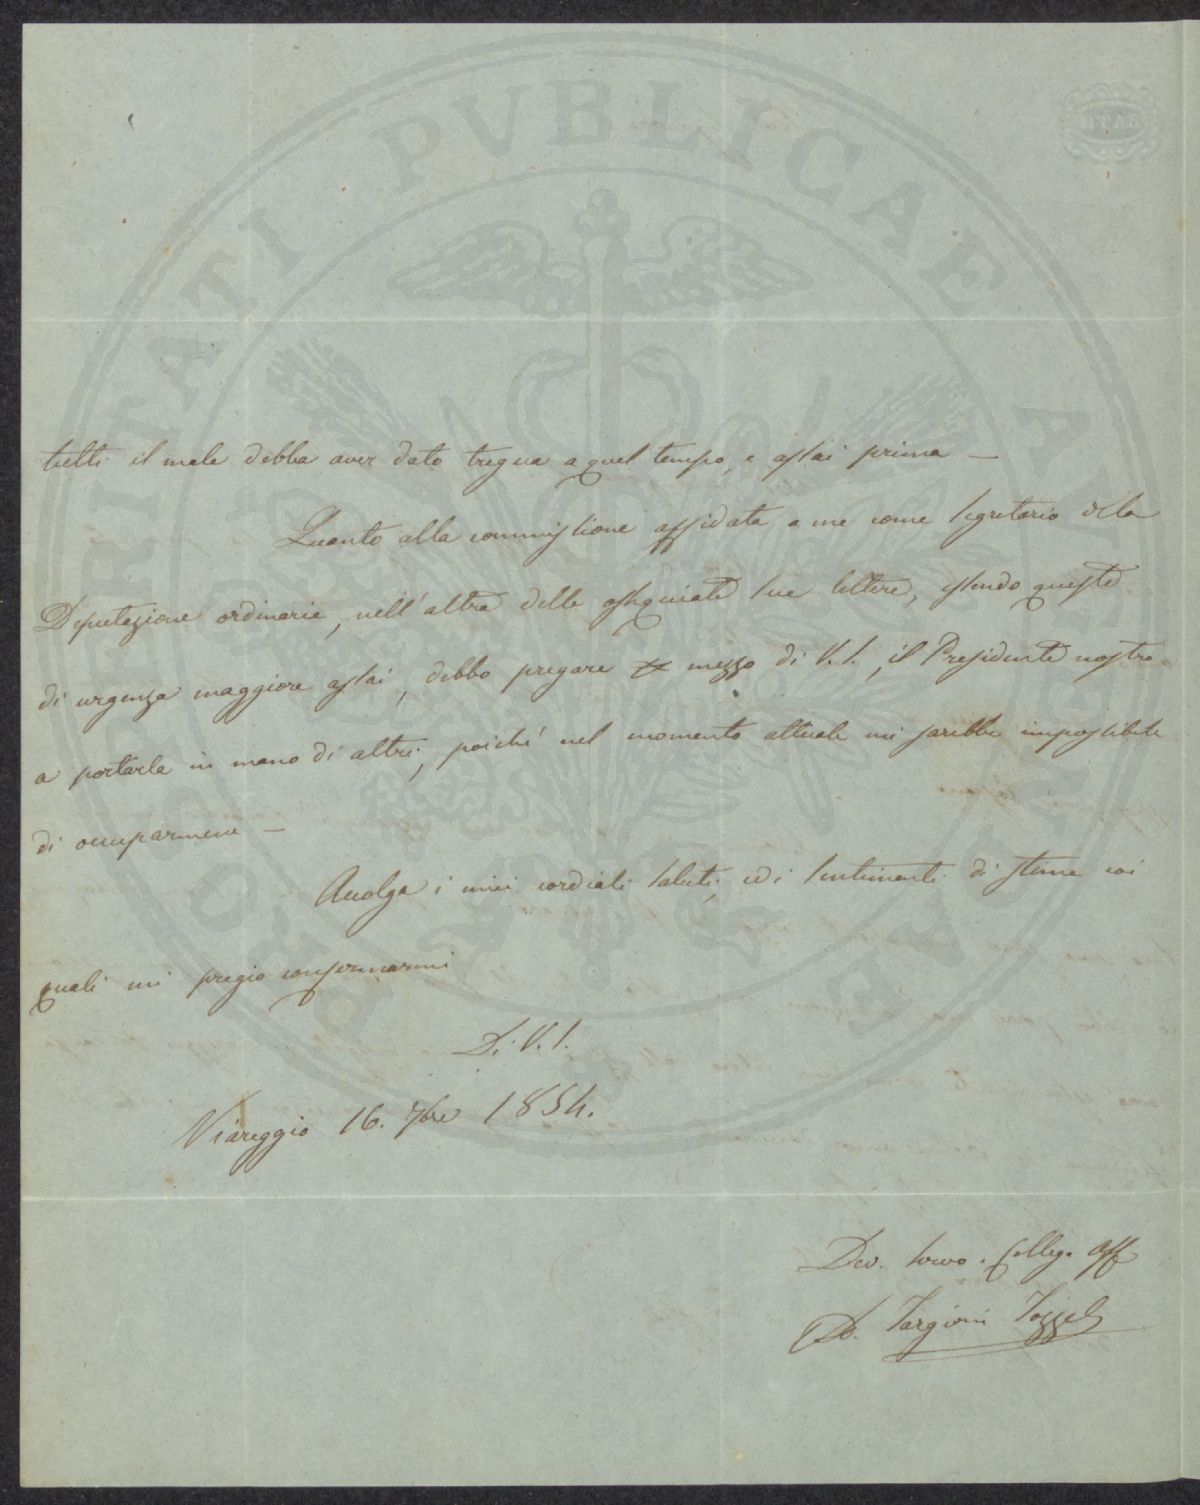 PROSPERITATI PVBLICAE AVGENDAE
BATH
tutti il male debba aver dato tregua a quel tempo, e assai prima —
Quanto alla commissione affidata a me come Segretario della
Deputazione ordinaria, nell'altra delle ossequiate sue lettere, essendo queste
di urgenza maggiore assai, debbo pregare mezzo di V. S., il Presidente nostro
a portarla in mano di altri, poiché nel momento attuale mi sarebbe impossibile
di occuparmene —
Accolga i miei cordiali saluti, ed i sentimenti di stima coi
quali mi pregio confermarmi
Di V. S.
Viareggio 16. 7bre 1854.
Dev. Servo. Colleg. Aff
Do. Targioni Tozzetti